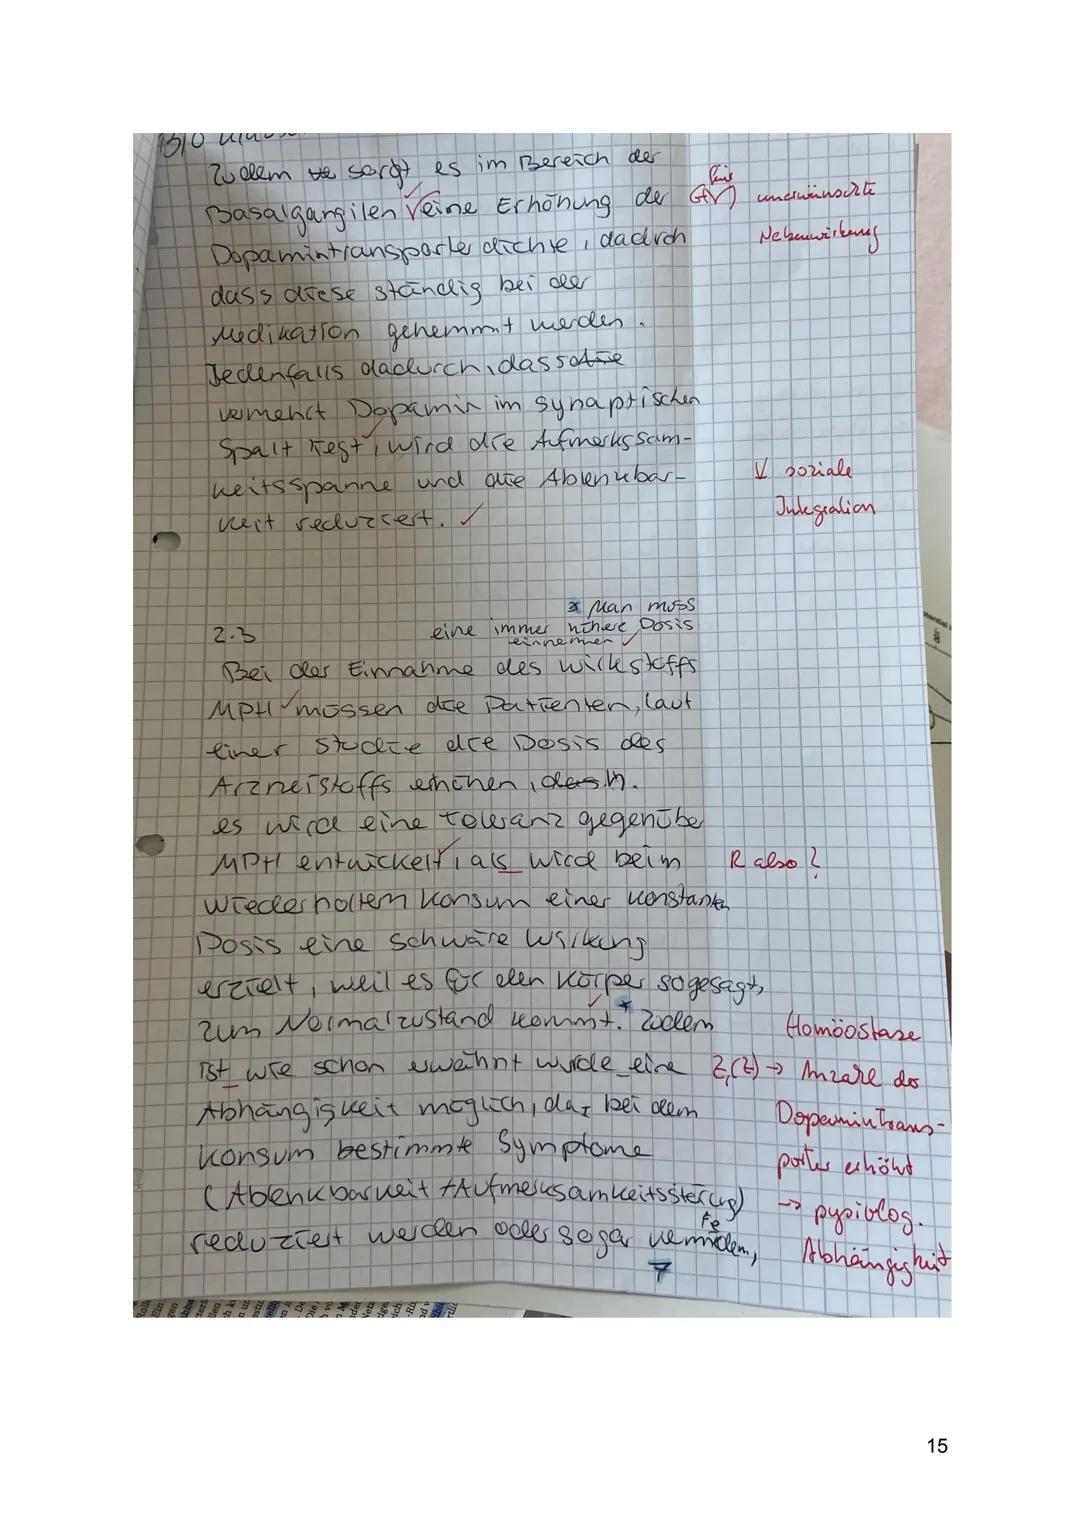 Zudem sorgt es im Bereich der
Basalgangilen eine Erhöhung der (Gr) für unerwünschte
Dopamintransporterdichte, dadruch Nebenwirkung
dass diese ständig bei der
Medikation gehemmt werden.
Jedenfalls dadurch, dass
vermehrt Dopamin im synaptischen
Spalt liegt, wird die Aufmerkssam-
keitsspanne und die Ablenkbar- ↓ soziale
keit reduziert. ✓ Integration
* Man muss
2.3 eine immer höhere Dosis
einnehmen ✓
Bei der Einnahme des Wirkstoffs
MPH müssen die Patienten, laut
einer Studie die Dosis des
Arzneistoffs erhöhen, d.h.
es wird eine toleranz gegenüber
MPH entwickelt, als wird beim R also?
wiederholtem Konsum einer konstanten
Dosis eine schwäre Wirkung
erzielt, weil es für den Körper sogesagt,
zum Normalzustand kommt.* Zudem Homöostase
ist wie schon erwähnt wurde eine Z,(Z) → Anzahl der
Abhängigkeit möglich, da, bei dem Dopamintrans-
Konsum bestimmte Symptome porter erhöht
(Ablenkbarkeit + Aufmerksamkeitsstörung) → pysiolog.
reduziert werden oder sogar vermiden, Abhängigkeit
Fe
7
15